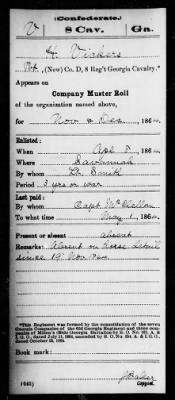 (Confederate.)
V 8 Cav. Ga.
H. Vickers
Pvt., (New) Co. D, 8 Reg't Georgia Cavalry.*
Appears on
Company Muster Roll
of the organization named above,
for Nov & Dec, 186
Enlisted:
When 186
Where Savannah
By whom Lt. Smith
Period 3 years or war
Last paid:
By whom Capt. McClellan
To what time May 1, 186
Present or absent absent
Remarks: Absent on horse detail
since 19" Nov
*This Regiment was formed by the consolidation of the seven
Georgia Companies of the Old Georgia Regiment and three com-
panies of Millen's (20th) Georgia Battalion by S. O. No. 161, A. & I.
G. O., dated July 11, 1864, amended by S. O. No. 254, A. & I. G. O.,
dated October 26, 1864.
Book mark:
(642)
Copyist.